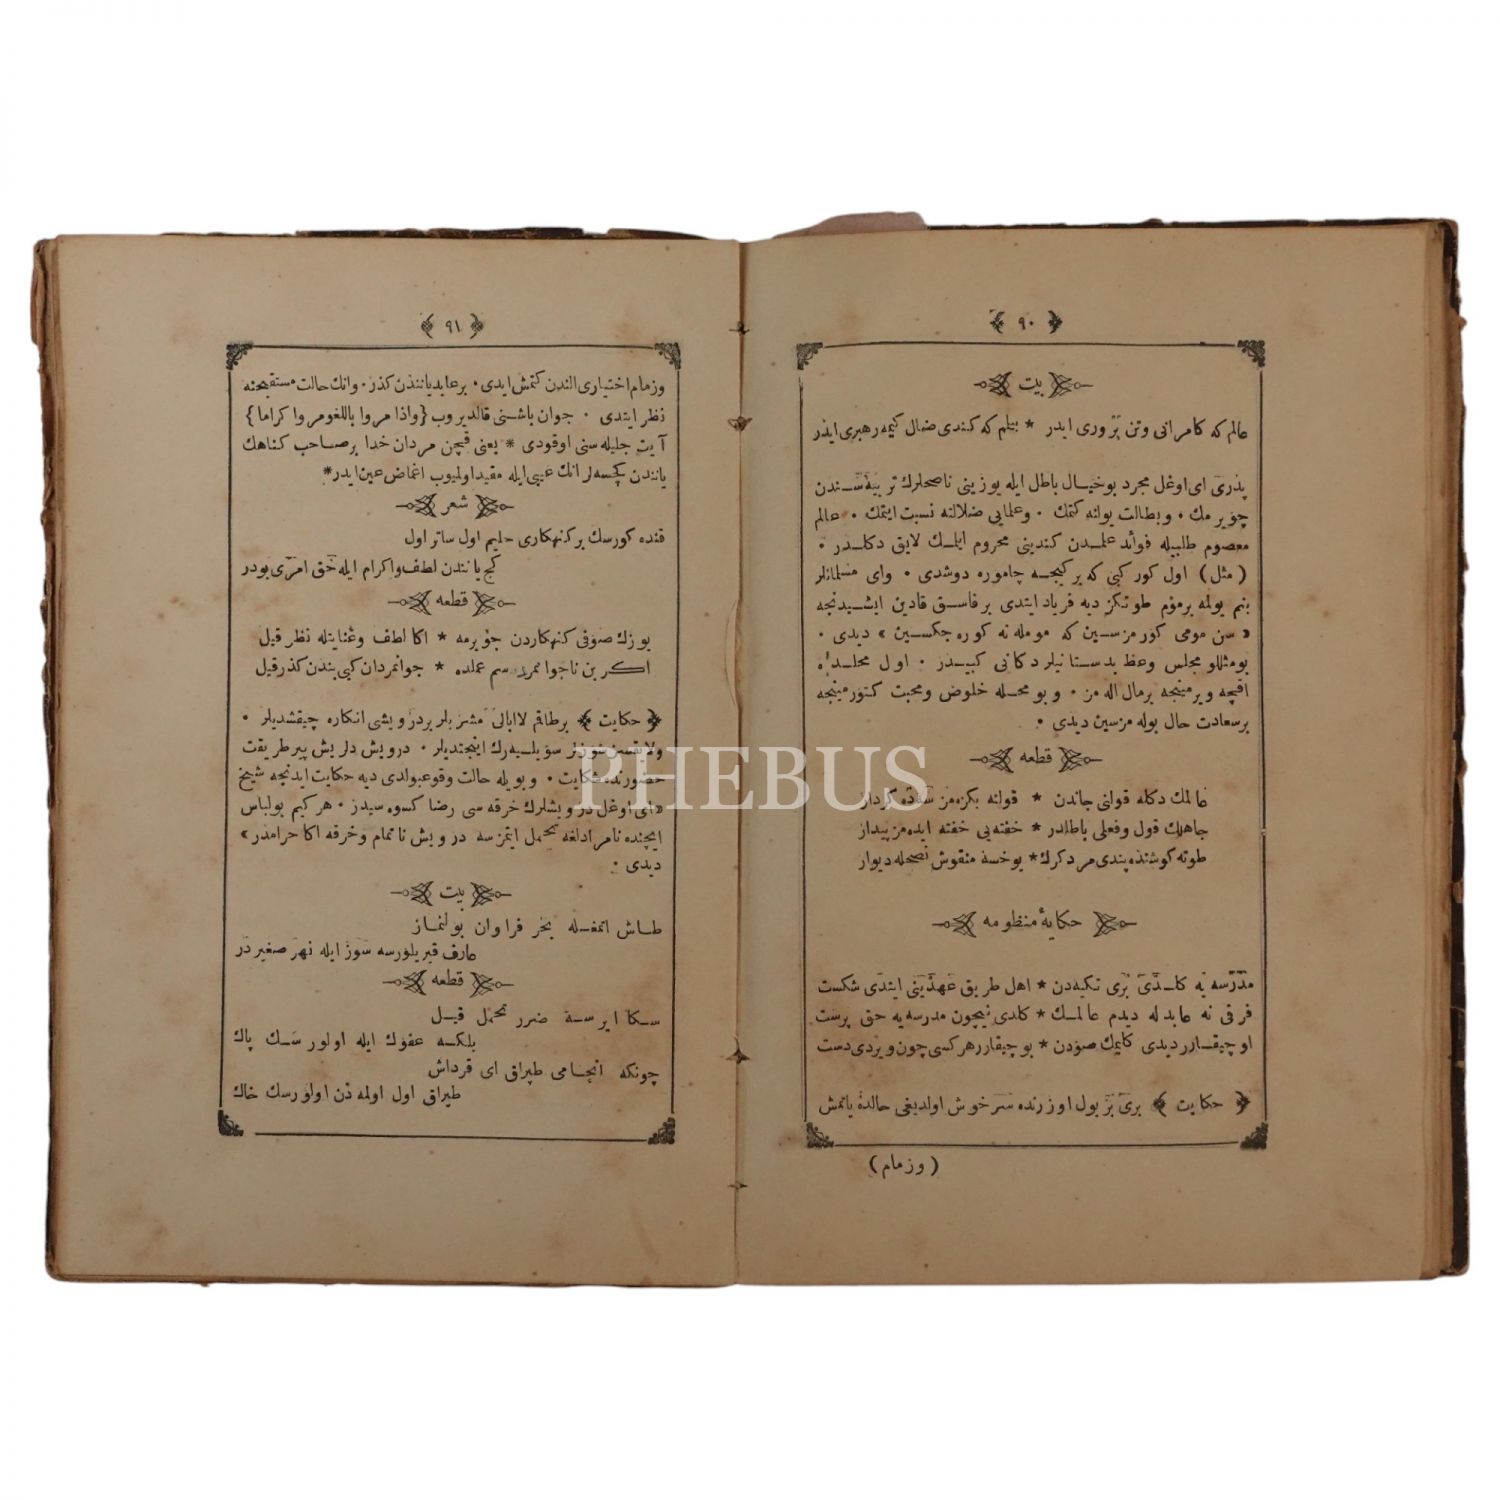 ﴿ ٩٠ ﴾
بيت
عالم كه كامرانى وتن پرورى ايدر * بتلم كه كندى ضال كيمه رهبرى ايدر
پدرى اى اوغل مجرد بوخيال باطل ايله يوزينى ناصحلرك تربيه سندن
چويرمك ٠ وبطالت يولنه كتمك ٠ وعلمايى ضلالته نسبت ايتمك ٠ عالم
معصوم طلبيله فوائد علمدن كندينى محروم ايلمك لايق دكلدر ٠
(مثل) اول كور كبى كه بر كيجه چاموره دوشدى ٠ واى مسلمانلر
بنم يولمه برموم طوتكز ديه فرياد ايتدى بر فاسق قادين ايشيدنجه
« سن مومى كورمزسين كه مومله نه كوره جكسين » ديدى ٠
بومثللو مجلس وعظ بدستانيلر دكانى كبيدر ٠ اول محلده
اقچه ويرمينجه برمال اله مز ٠ وبو محله خلوص ومحبت كتورمينجه
برسعادت حال بوله مزسين ديدى ٠
قطعه
عالمك دكله قولنى جاندن * قولنه بكزه مز سه ده كردار
جاهلك قول وفعلى باطلدر * خفته يى خفته ايده مز پيدار
طوته كوشنده پندى مرد كرك * بوخسه منقوش نصحله ديوار
حكايهٔ منظومه
مدرسه يه كلدى برى تكيه دن * اهل طريق عهدينى ايتدى شكست
فرقى نه عابد له ديدم عالمك * كلدى نيچون مدرسه يه حق پرست
او چيقارر ديدى كليمك صودن * بو چيقارر هركسى چون ويردى دست
﴿ حكايت ﴾ برى بر يول اوزرنده سرخوش اولديغى حالده ياتمش
(وزمام)
﴿ ٩١ ﴾
وزمام اختيارى الندن كتمش ايدى ٠ بر عابد يانندن كذر ٠ وانك حالت مستقبحنه
نظر ايتدى ٠ جوان باشنى قالديروب {واذا مروا باللغو مروا كراما}
آيت جليله سنى اوقودى * يعنى قچن مردان خدا بر صاحب كناهك
يانندن كچسه لر انك عيبى ايله مقيد اولميوب اغماض عين ايدر *
شعر
قنده كورسك بر كنهكارى حليم اول ساتر اول
كچ يانندن لطف واكرام ايله حق امرى بودر
قطعه
يوزك صوفى كنهكاردن چويرمه * اكا لطف وعنايتله نظر قيل
اكر بن ناجوانمردسم عملده * جوانمردان كبى بندن كذر قيل
﴿ حكايت ﴾ برطاقم لاابالى مشربلر بر درويشى انكاره چيقشديلر ٠
ولايقسز سوزلر سويليه رك اينجتديلر ٠ درويش دلريش پير طريقت
حضورنده شكايت ٠ وبويله حالت وقوعبولدى ديه حكايت ايدنجه شيخ
« اى اوغل درويشلرك خرقه سى رضا كسوه سيدر ٠ هركيم بولباس
ايچنده نامرادلغه تحمل ايتمزسه درويش ناتمام وخرقه اكا حرامدر »
ديدى ٠
بيت
طاش اتمغله بحر فراوان بولنماز
عارف قيريلورسه سوز ايله نهر صغير در
قطعه
سكا ايرسه ضرر تحمل قيل
بلكه عفوك ايله اولورسك پاك
چونكه انجامى طپراق اى قرداش
طپراق اول اولمه دن اولورسك خاك
PHEBUS